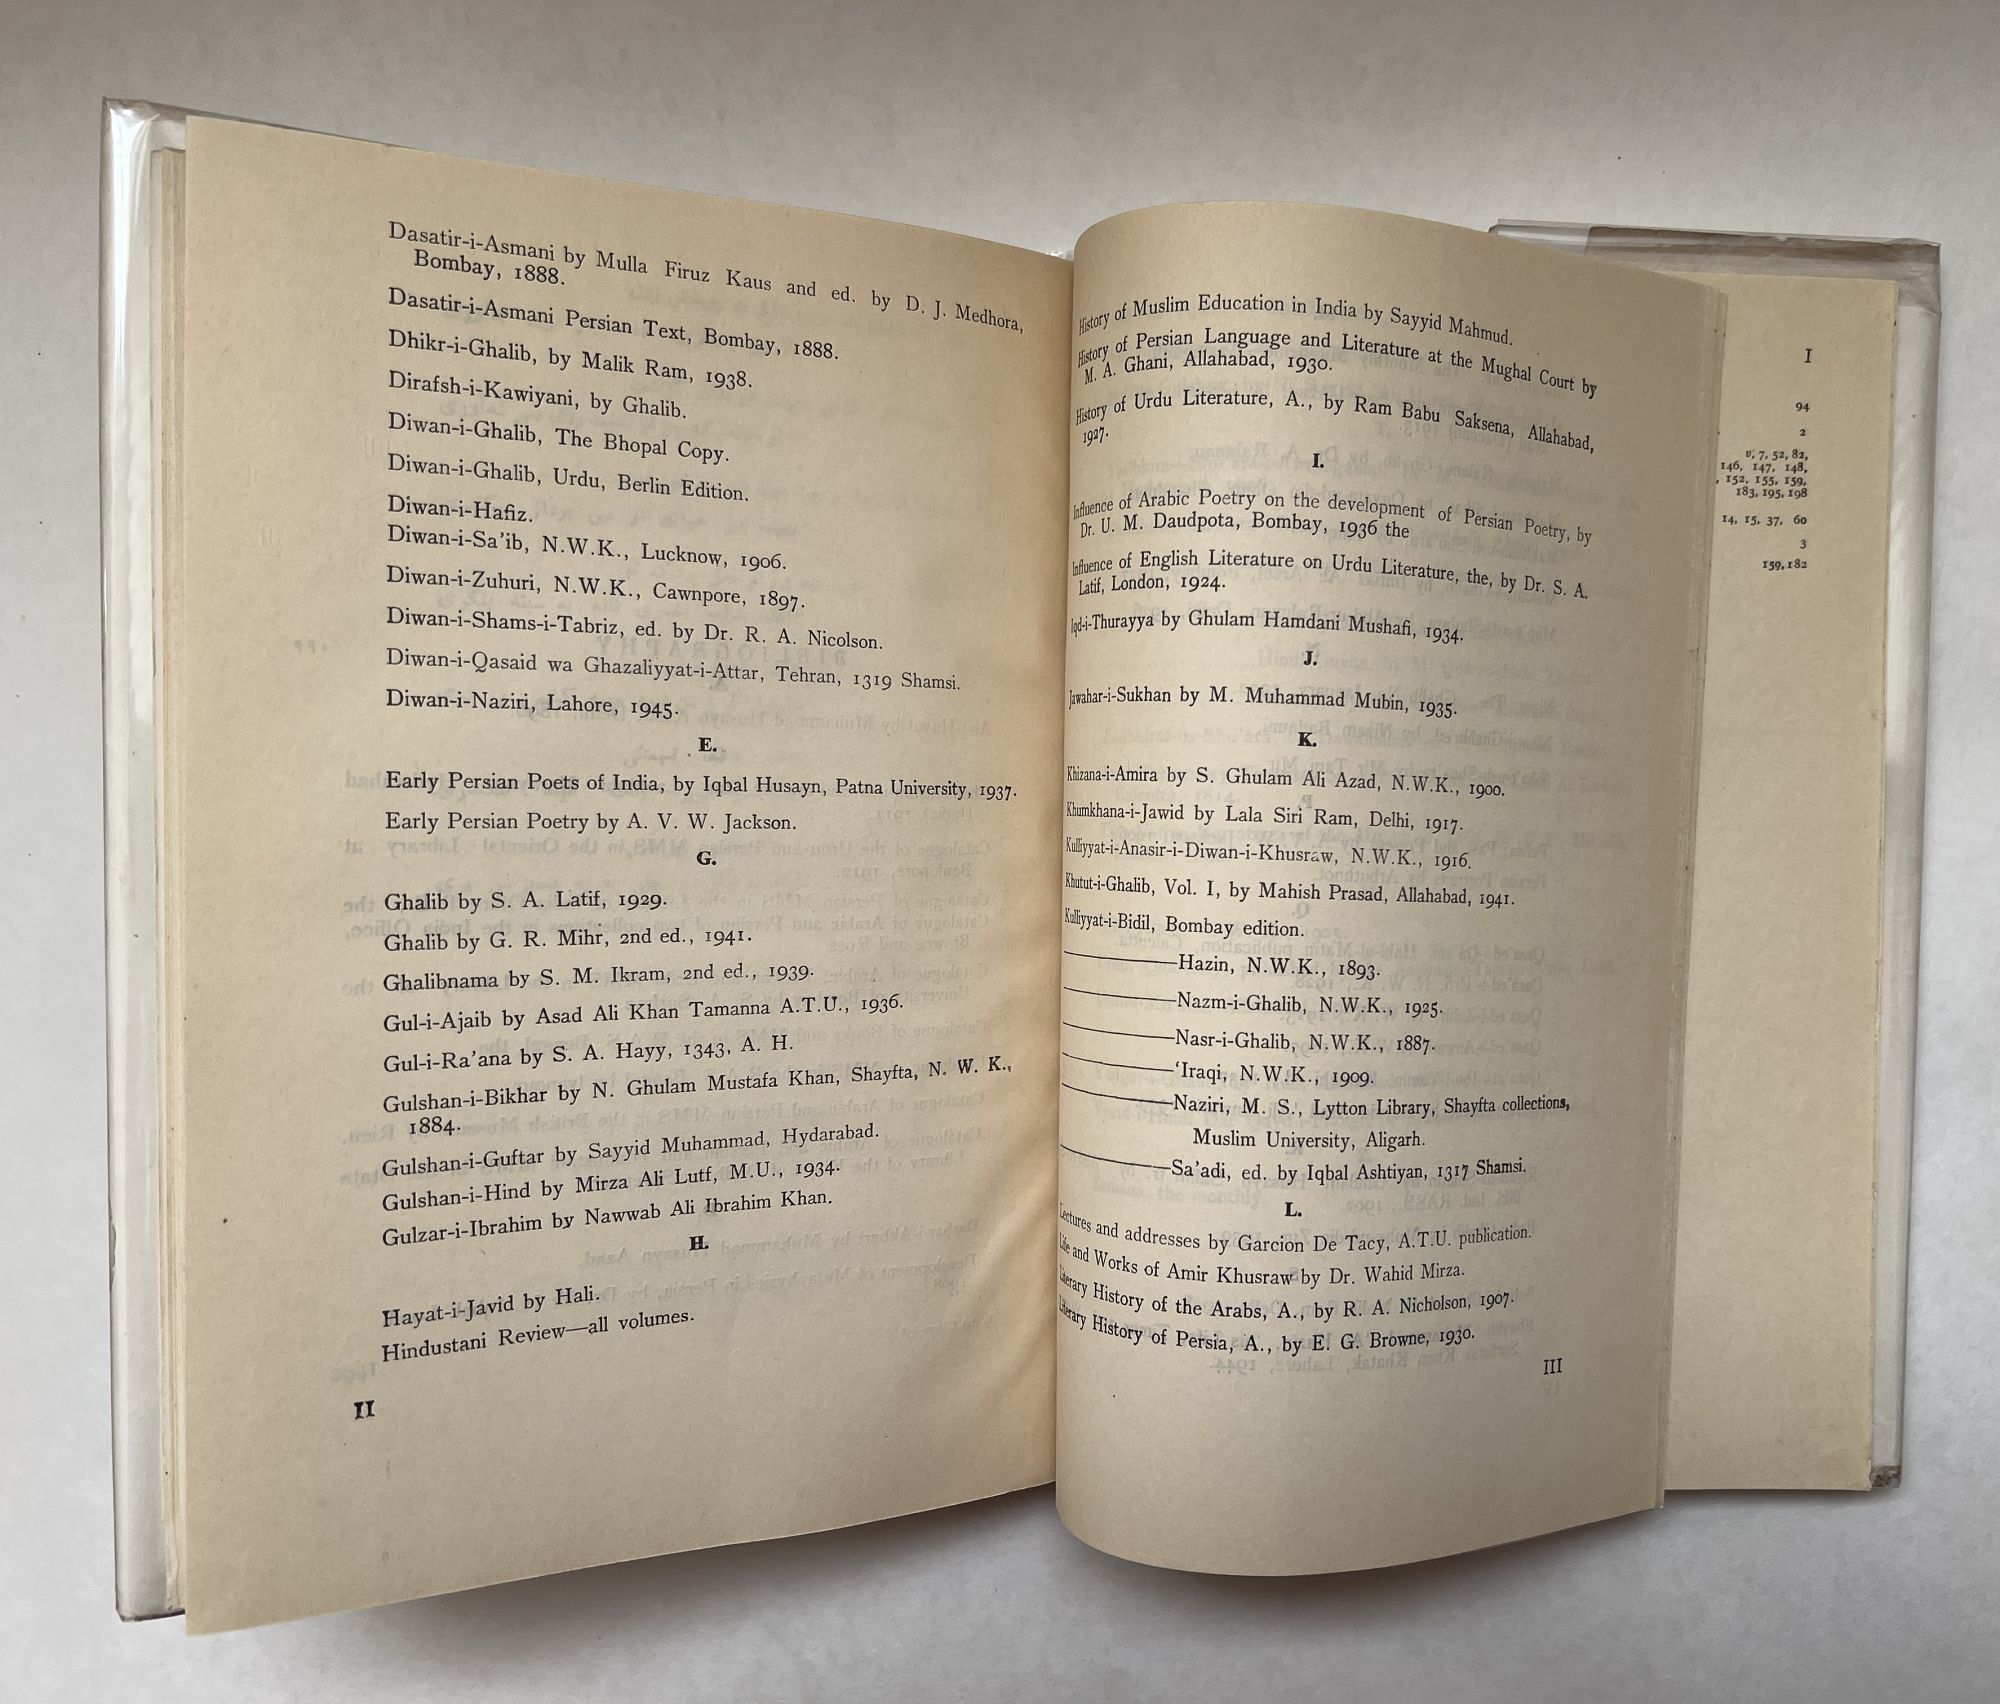 Dasatir-i-Asmani by Mulla Firuz Kaus and ed. by D. J. Medhora,
Bombay, 1888.
Dasatir-i-Asmani Persian Text, Bombay, 1888.
Dhikr-i-Ghalib, by Malik Ram, 1938.
Dirafsh-i-Kawiyani, by Ghalib.
Diwan-i-Ghalib, The Bhopal Copy.
Diwan-i-Ghalib, Urdu, Berlin Edition.
Diwan-i-Hafiz.
Diwan-i-Sa'ib, N.W.K., Lucknow, 1906.
Diwan-i-Zuhuri, N.W.K., Cawnpore, 1897.
Diwan-i-Shams-i-Tabriz, ed. by Dr. R. A. Nicolson.
Diwan-i-Qasaid wa Ghazaliyyat-i-Attar, Tehran, 1319 Shamsi.
Diwan-i-Naziri, Lahore, 1945.
E.
Early Persian Poets of India, by Iqbal Husayn, Patna University, 1937.
Early Persian Poetry by A. V. W. Jackson.
G.
Ghalib by S. A. Latif, 1929.
Ghalib by G. R. Mihr, 2nd ed., 1941.
Ghalibnama by S. M. Ikram, 2nd ed., 1939.
Gul-i-Ajaib by Asad Ali Khan Tamanna A.T.U., 1936.
Gul-i-Ra'ana by S. A. Hayy, 1343, A. H.
Gulshan-i-Bikhar by N. Ghulam Mustafa Khan, Shayfta, N. W. K.,
1884.
Gulshan-i-Guftar by Sayyid Muhammad, Hydarabad.
Gulshan-i-Hind by Mirza Ali Lutf, M.U., 1934.
Gulzar-i-Ibrahim by Nawwab Ali Ibrahim Khan.
H.
Hayat-i-Javid by Hali.
Hindustani Review—all volumes.
II
History of Muslim Education in India by Sayyid Mahmud.
History of Persian Language and Literature at the Mughal Court by
M. A. Ghani, Allahabad, 1930.
History of Urdu Literature, A., by Ram Babu Saksena, Allahabad,
1927.
I.
Influence of Arabic Poetry on the development of Persian Poetry, by
Dr. U. M. Daudpota, Bombay, 1936 the
Influence of English Literature on Urdu Literature, the, by Dr. S. A.
Latif, London, 1924.
Iqd-i-Thurayya by Ghulam Hamdani Mushafi, 1934.
J.
Jawahar-i-Sukhan by M. Muhammad Mubin, 1935.
K.
Khizana-i-Amira by S. Ghulam Ali Azad, N.W.K., 1900.
Khumkhana-i-Jawid by Lala Siri Ram, Delhi, 1917.
Kulliyyat-i-Anasir-i-Diwan-i-Khusraw, N.W.K., 1916.
Khutut-i-Ghalib, Vol. I, by Mahish Prasad, Allahabad, 1941.
Kulliyyat-i-Bidil, Bombay edition.
———Hazin, N.W.K., 1893.
———Nazm-i-Ghalib, N.W.K., 1925.
———Nasr-i-Ghalib, N.W.K., 1887.
———'Iraqi, N.W.K., 1909.
———Naziri, M. S., Lytton Library, Shayfta collections,
Muslim University, Aligarh.
———Sa'adi, ed. by Iqbal Ashtiyan, 1317 Shamsi.
L.
Lectures and addresses by Garcion De Tacy, A.T.U. publication.
Life and Works of Amir Khusraw by Dr. Wahid Mirza.
Literary History of the Arabs, A., by R. A. Nicholson, 1907.
Literary History of Persia, A., by E. G. Browne, 1930.
III
I
94
2
v, 7, 52, 82,
146, 147, 148,
, 152, 155, 159,
183, 195, 198
14, 15, 37, 60
3
159, 182